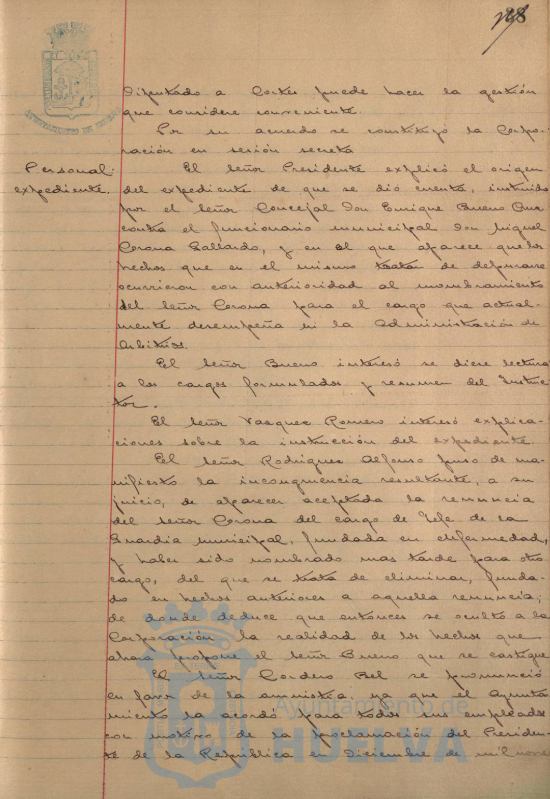 28
AYUNTAMIENTO DE HUELVA
Diputado a Cortes puede hacer la gestión
que considere conveniente.
Por su acuerdo se constituyó la Corpo-
ración en sesión secreta
Personal:
expediente.
El señor Presidente explicó el origen
del expediente de que se dió cuenta, instruido
por el señor Concejal Don Enrique Bueno
contra el funcionario municipal Don Miguel
Corona Gallardo, y en el que aparece que los
hechos que en el mismo tratan de depurarse
ocurrieron con anterioridad al nombramiento
del señor Corona para el cargo que actual-
mente desempeña en la Administración de
Arbitrios.
El señor Bueno interesó se diese lectura
a los cargos formulados y resumen del Instruc-
tor.
El señor Vasquez Romero interesó explica-
ciones sobre la instrucción del expediente.
El señor Rodriguez Alfonso puso de ma-
nifiesto la incongruencia resultante, a su
juicio, de aparecer aceptada la renuncia
del señor Corona del cargo de Jefe de la
Guardia municipal, fundada en enfermedad,
y haber sido nombrado mas tarde para otro
cargo, del que se trata de eliminar, funda-
do en hechos anteriores a aquella renuncia;
de donde deduce que entonces se ocultó a la
Corporación la realidad de los hechos que
ahora propone el señor Bueno que se castigue
El señor Cordero Bel se pronunció
en favor de la amnistia, ya que el Ayunta
miento la acordó para todos sus empleados
con motivo de la proclamación del Presiden-
te de la República en Diciembre de mil nove
Ayuntamiento de
HUELVA